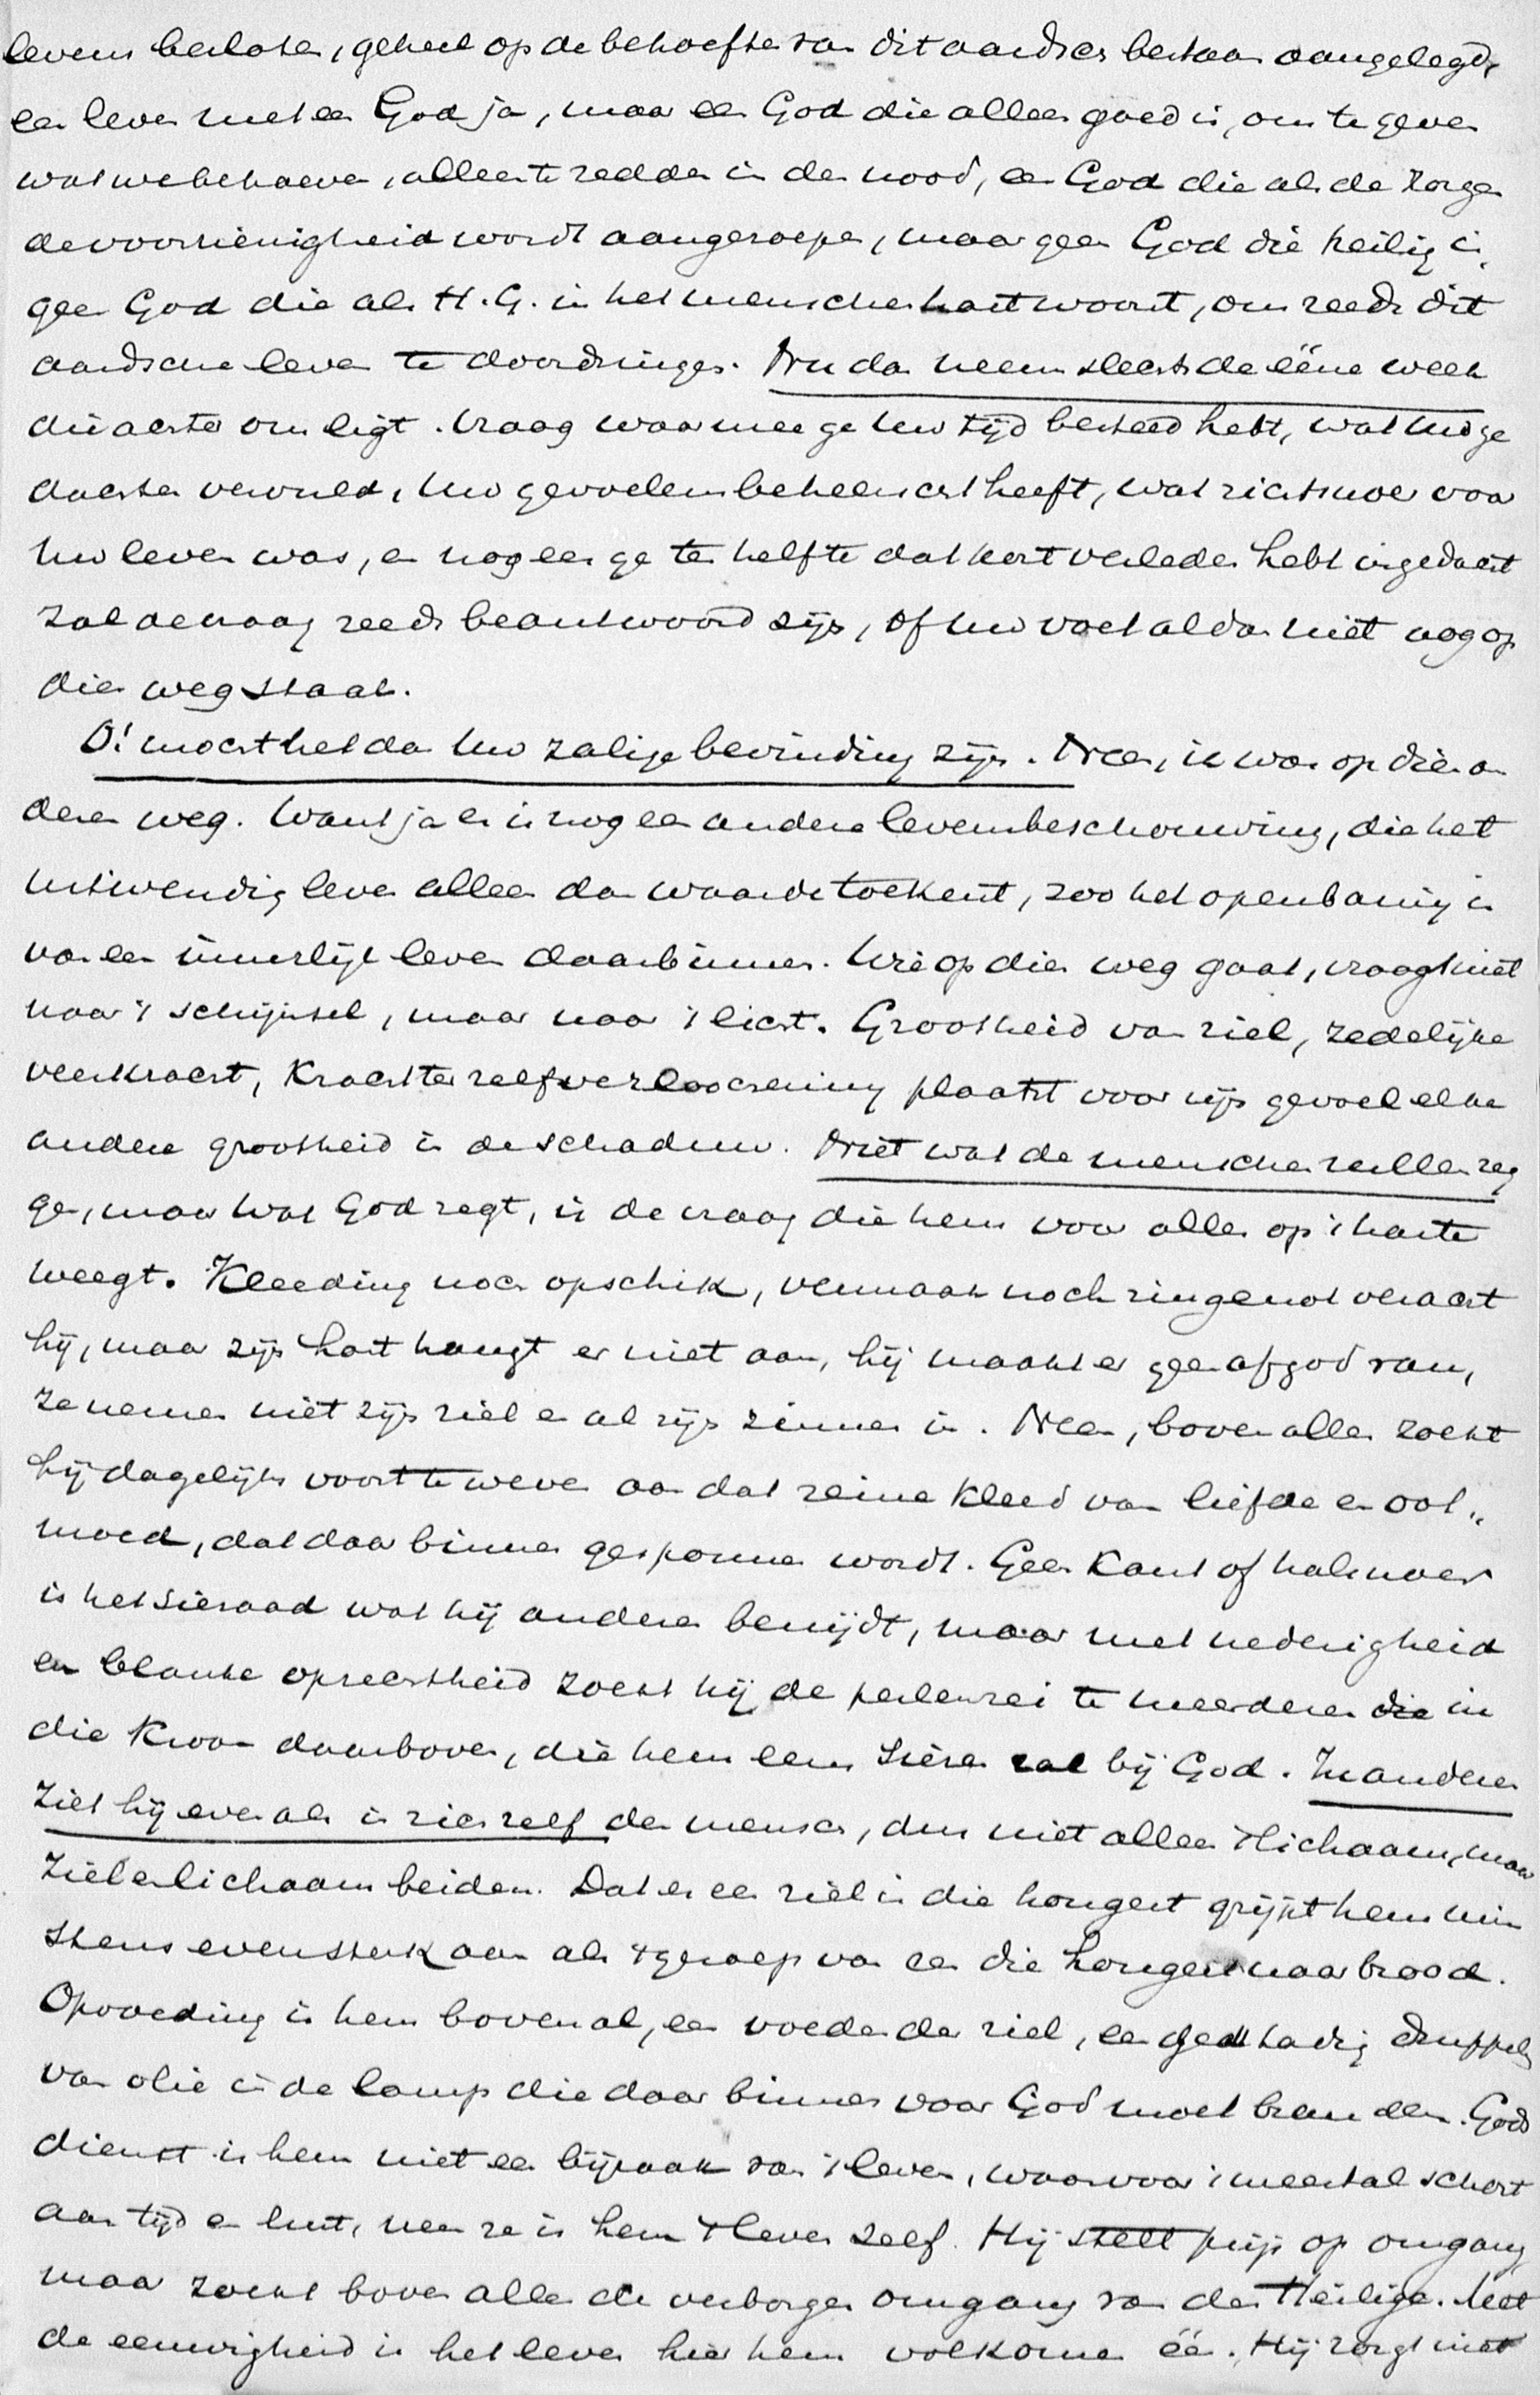 levens besloten, geheel op de behoefte van dit aardsch bestaan aangelegd,
een leven met een God ja, maar een God die alleen goed is, om te geven
wat we behoeven, alleen te redden in den nood, een God die als de zorgen
de voorzienigheid wordt aangeroepen, maar geen God die heilig is,
geen God die als H.G. in het menschenhart woont, om reeds dit
aardsche leven te doordringen. Nu dan neem slechts de ééne week
die achter ons ligt. Vraag waarmee ge Uw tijd besteed hebt, wat Uw ge
dachten vervuld, Uw gevoelens beheerscht heeft, wat richtsnoer voor
Uw leven was, en nog eer ge ten helfte dat kort verleden hebt ingedacht
zal de vraag reeds beantwoord zijn, of Uw voet al dan niet nog op
dien weg staat.
O! mocht het dan Uw zalige bevinding zijn. Neen, ik was op dien an
deren weg. Want ja er is nog een andere levensbeschouwing, die het
uitwendig leven alleen dan waarde toekent, zoo het openbaring is
van een innerlijk leven daarbinnen. Wie op dien weg gaat, vraagt niet
naar 't schijnsel, maar naar 't licht. Grootheid van ziel, zedelijke
veerkracht, kracht ter zelfverloochening plaatst voor zijn gevoel elke
andere grootheid in de schaduw. Niet wat de menschen zullen zeg
gen, maar wat God zegt, is de vraag die hem voor alles op 't harte
weegt. Kleeding noch opschik, vermaak noch zingenot veracht
hij, maar zijn hart hangt er niet aan, hij maakt er geen afgod van,
ze nemen niet zijn ziel en al zijn zinnen in. Neen, boven alles zoekt
hij dagelijks voort te weven aan dat reine kleed van liefde en oot„
moed, dat daar binnen gesponnen wordt. Geen kant of halssnoer
is het sieraad wat hij anderen benijdt, maar met nederigheid
en blanke oprechtheid zoekt hij de parelenrei te meerderen die in
die kroon daarboven, die hem eens sieren zal bij God. In anderen
ziet hij even als in zich zelf den mensch, dus niet alleen 't lichaam, maar
ziel en lichaam beiden. Dat er een ziel is die hongert grijpt hem min
stens even sterk aan als 't geroep van een die hongert naar brood.
Opvoeding is hem bovenal, een voeden der ziel, een gestadig druppelen
van olie in de lamp die daar binnen voor God moet branden. Gods
dienst is hem niet een bijzaak van 't leven, waarvoor 't meestal schort
aan tijd en lust, neen ze is hem 't leven zelf. Hij stelt prijs op omgang
maar zoekt boven alles de verborgen omgang van den Heilige. Met
de eeuwigheid is het leven hier hem volkomen één. Hij zorgt niet